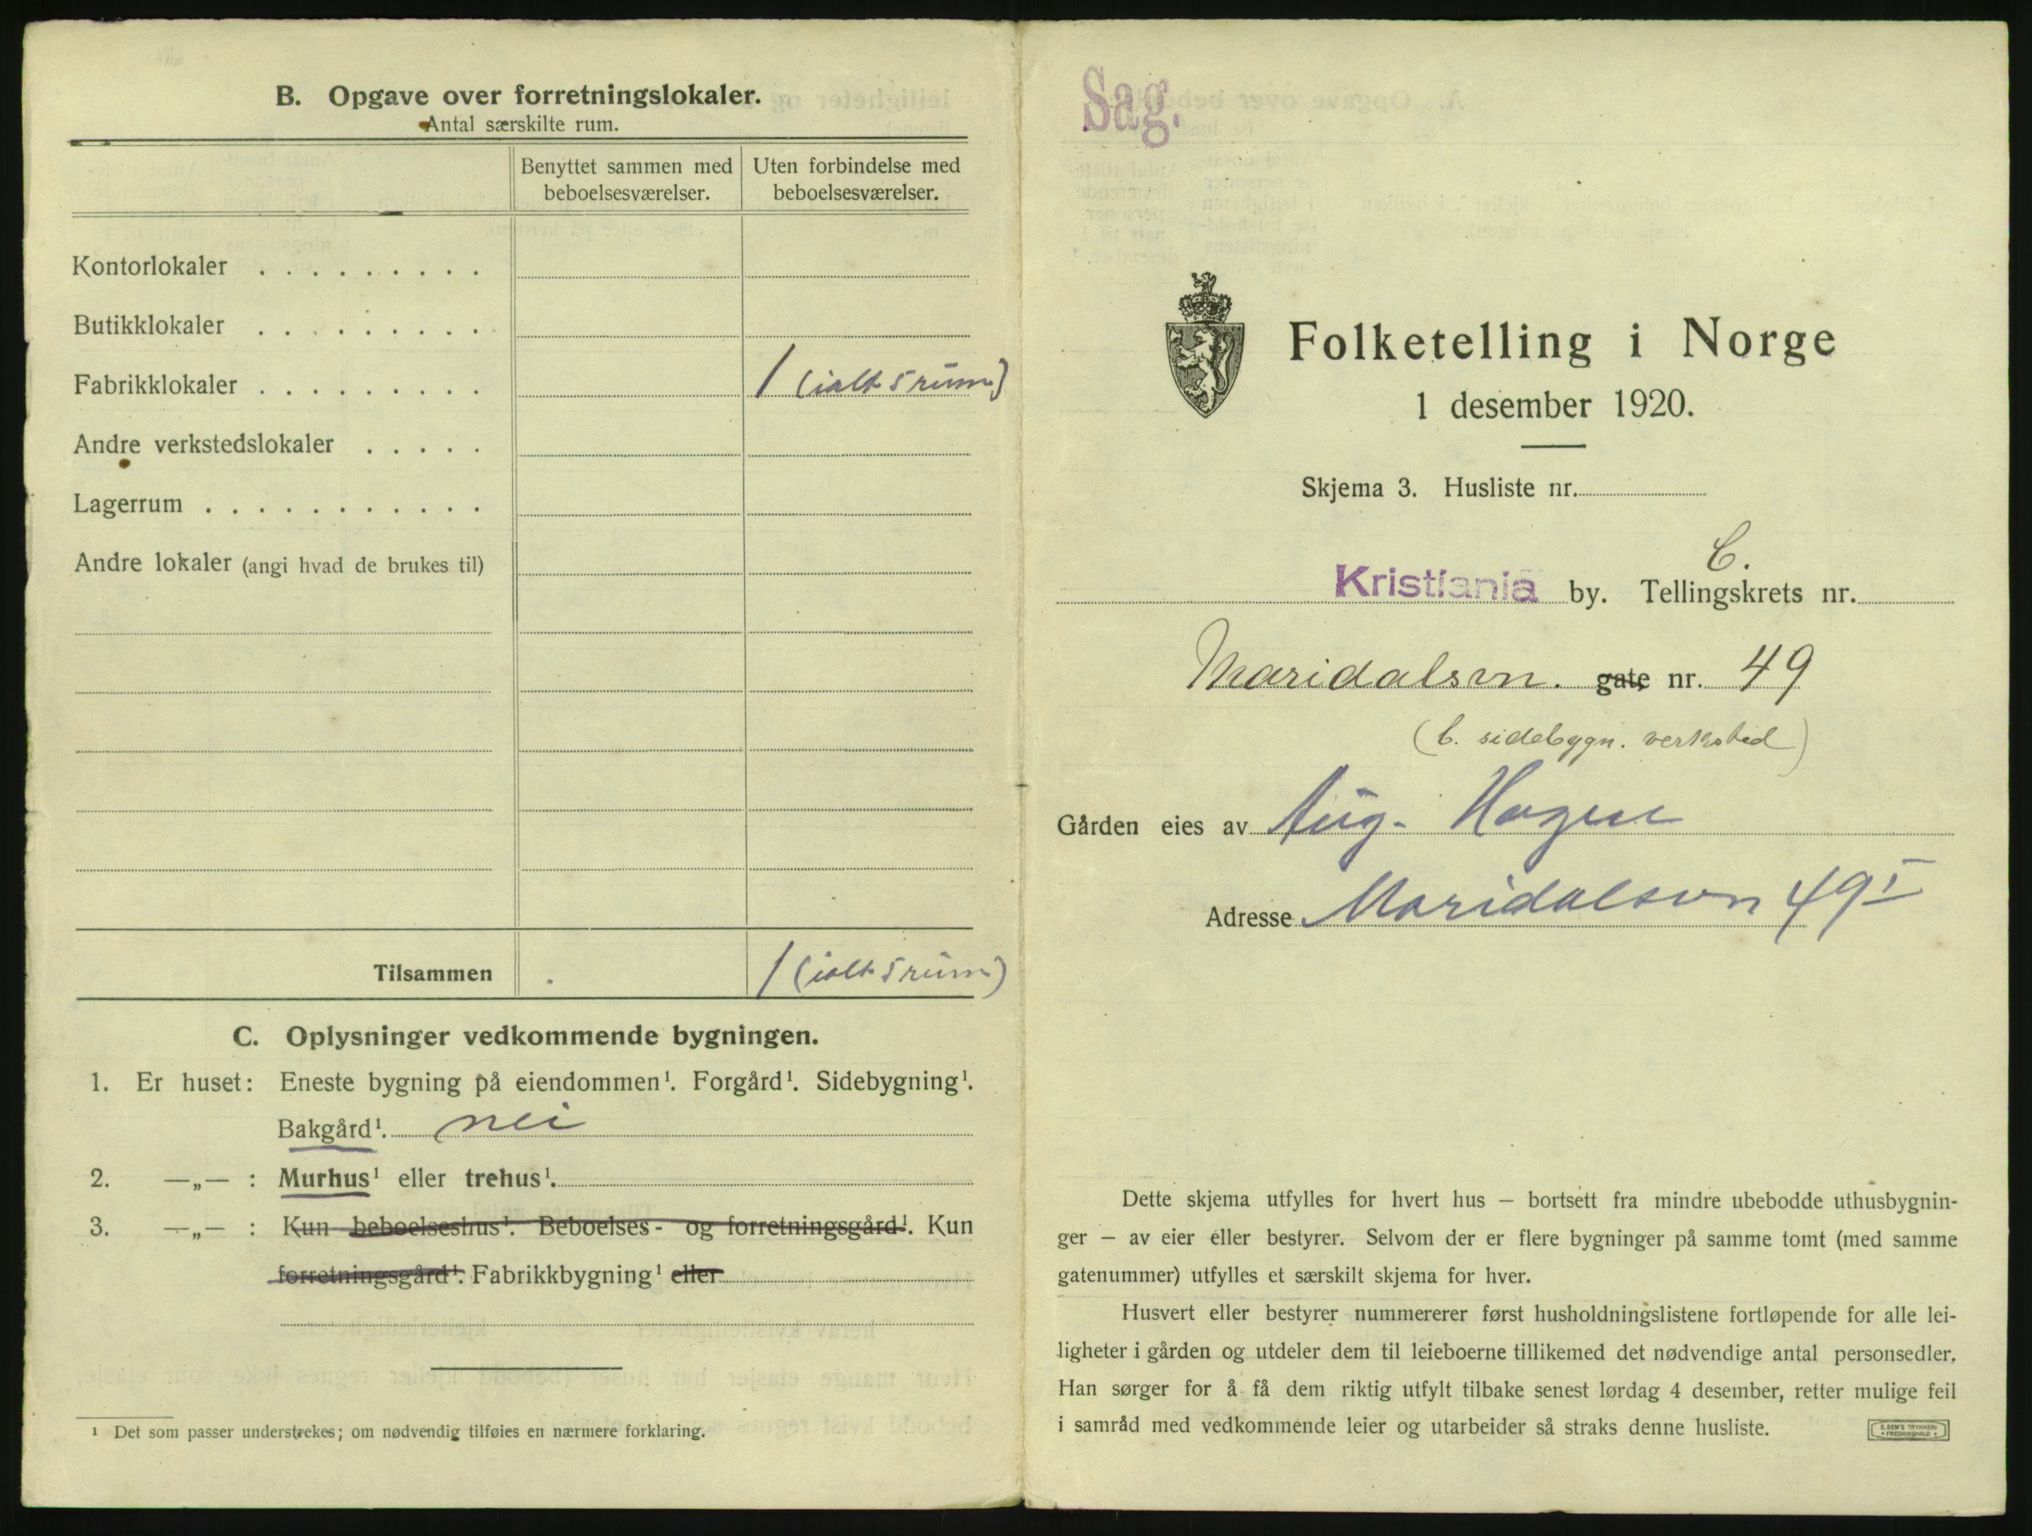 B. Opgave over forretningslokaler.
Antal særskilte rum.
Benyttet sammen med beboelsesværelser.
Uten forbindelse med beboelsesværelser.
Kontorlokaler . . . . . . . . .
Butikklokaler . . . . . . . . .
Fabrikklokaler . . . . . . . . . 1 (ialt 5 rum)
Andre verkstedslokaler . . . . .
Lagerrum . . . . . . . . . . .
Andre lokaler (angi hvad de brukes til)
Tilsammen 1 (ialt 5 rum)
C. Oplysninger vedkommende bygningen.
1. Er huset: Eneste bygning på eiendommen¹. Forgård¹. Sidebygning¹.
Bakgård¹. nei
2. —„— : Murhus¹ eller trehus¹.
3. —„— : Kun beboelseshus¹. Beboelses- og forretningsgård¹. Kun
forretningsgård¹. Fabrikkbygning¹ eller
¹ Det som passer understrekes; om nødvendig tilføies en nærmere forklaring.
Sag.
Folketelling i Norge
1 desember 1920.
Skjema 3. Husliste nr.
C.
Kristiania by. Tellingskrets nr.
Maridalsvn. gate nr. 49
(b. sidebygn. verksted)
Gården eies av Aug. Hagen
Adresse Maridalsvn 49 I
Dette skjema utfylles for hvert hus – bortsett fra mindre ubebodde uthusbygnin-
ger – av eier eller bestyrer. Selvom der er flere bygninger på samme tomt (med samme
gatenummer) utfylles et særskilt skjema for hver.
Husvert eller bestyrer nummererer først husholdningslistene fortløpende for alle lei-
ligheter i gården og utdeler dem til leieboerne tillikemed det nødvendige antal personsedler.
Han sørger for å få dem riktig utfylt tilbake senest lørdag 4 desember, retter mulige feil
i samråd med vedkommende leier og utarbeider så straks denne husliste.
E. SEM'S TRYKKERI
FREDRIKSHALD